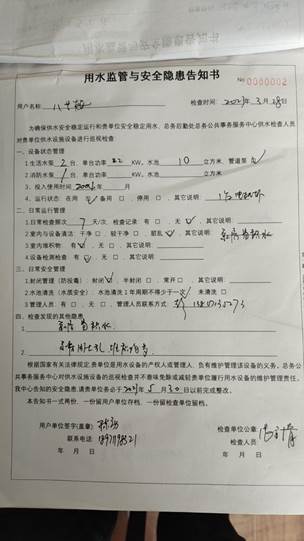 用水监管与安全隐患告知书
No 0000002
用户名称: 检查时间: 2021年3月18日
为确保供水安全稳定运行和贵单位安全稳定用水,总务后勤处总务公共事务服务中心供水检查人员
对贵单位供水设施设备进行巡视检查:
一、设备状态管理
1.生活水泵 2 台、单台功率 22 KW、水池 10 立方米、管道泵
2.消防水泵 1 台、单台功率 KW、水池 立方米
3、投入使用时间 年 月
4、运行状态:在用 √ 备用 □、停用 □、其它说明:
二、日常运行管理
1.日常检查频次 7 天/次、检查记录:有 □、无 √、其它说明:
2.室内与设备清洁:干净 □、较干净 □、脏乱 √、其它说明: 泵房有积水
3.室内堆积物:有 无 □、其它说明:
4.设备检测检查 有 □、无 √、其它说明:
三、日常安全管理
1.封闭管理(防投毒) 封闭 半封闭 □、常开 □、其它说明:
2.水池清洗(水质安全):水池清洗1年周期不得少于一次 未清洗 □
3.管理人员:有 □、无 □、管理人员联系方式:
四、检查发现的其他隐患
1. 泵房有积水
2.
根据国家有关法律规定,贵单位是用水设备的产权人或管理人,负有维护管理该设备的义务。总务公
共事务服务中心对供水设施设备的巡视检查并不意味免除或减轻贵单位履行用水设备的维护管理责任。
我中心告知的安全隐患,请贵单位务必于 2021 年 5 月 30 日以前完成整改。
本告知书一式两份,一份留用户单位存档、一份留检查单位留档。
用户单位签字(盖章): 检查单位公章:
联系电话: 检查人员
年 月 日 年 月 日